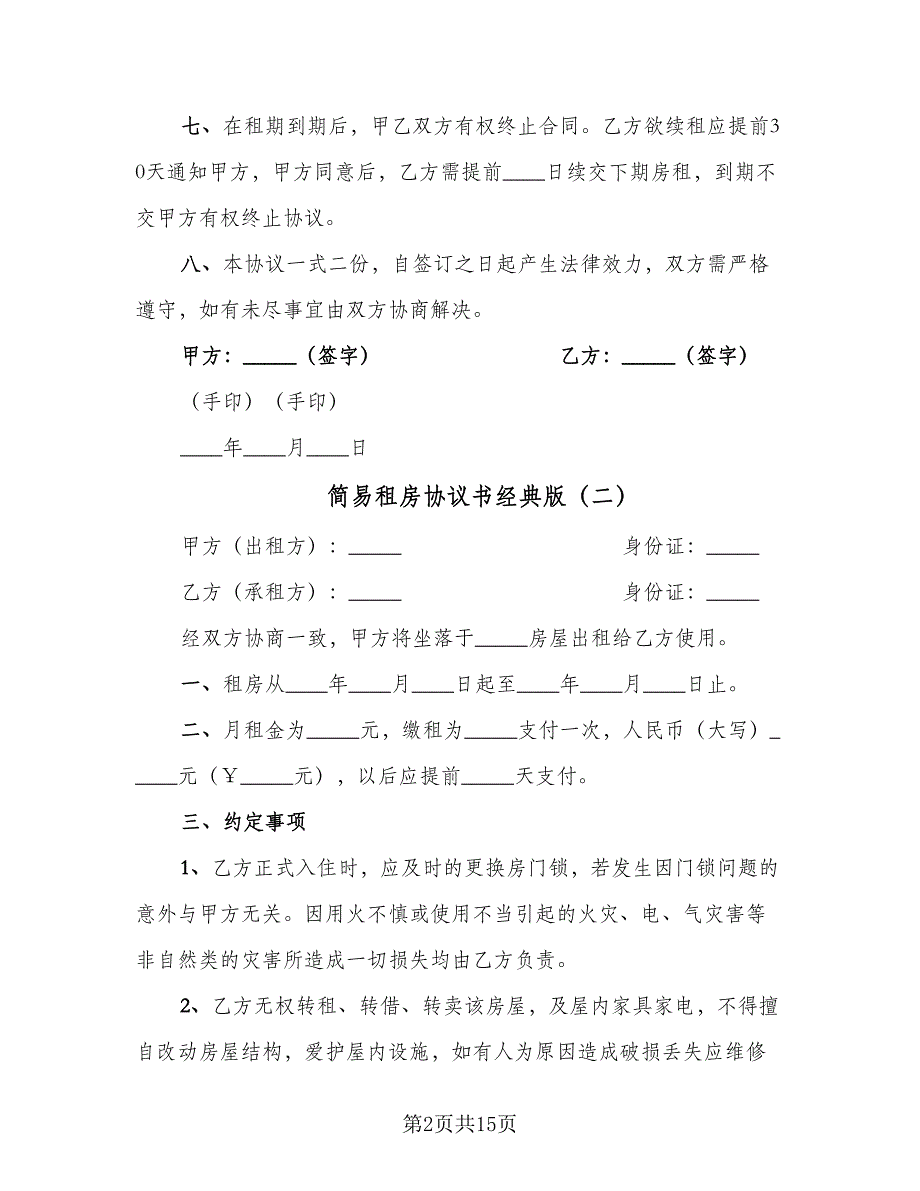 七、在租期到期后，甲乙双方有权终止合同。乙方欲续租应提前3
0天通知甲方，甲方同意后，乙方需提前____日续交下期房租，到期不
交甲方有权终止协议。
八、本协议一式二份，自签订之日起产生法律效力，双方需严格
遵守，如有未尽事宜由双方协商解决。
甲方：_____（签字） 乙方：_____（签字）
（手印）（手印）
____年____月____日
简易租房协议书经典版（二）
甲方（出租方）：_____ 身份证：_____
乙方（承租方）：_____ 身份证：_____
经双方协商一致，甲方将坐落于_____房屋出租给乙方使用。
一、租房从____年____月____日起至____年____月____日止。
二、月租金为_____元，缴租为_____支付一次，人民币（大写）_
____元（￥_____元），以后应提前_____天支付。
三、约定事项
1、乙方正式入住时，应及时的更换房门锁，若发生因门锁问题的
意外与甲方无关。因用火不慎或使用不当引起的火灾、电、气灾害等
非自然类的灾害所造成一切损失均由乙方负责。
2、乙方无权转租、转借、转卖该房屋，及屋内家具家电，不得擅
自改动房屋结构，爱护屋内设施，如有人为原因造成破损丢失应维修
第2页共15页